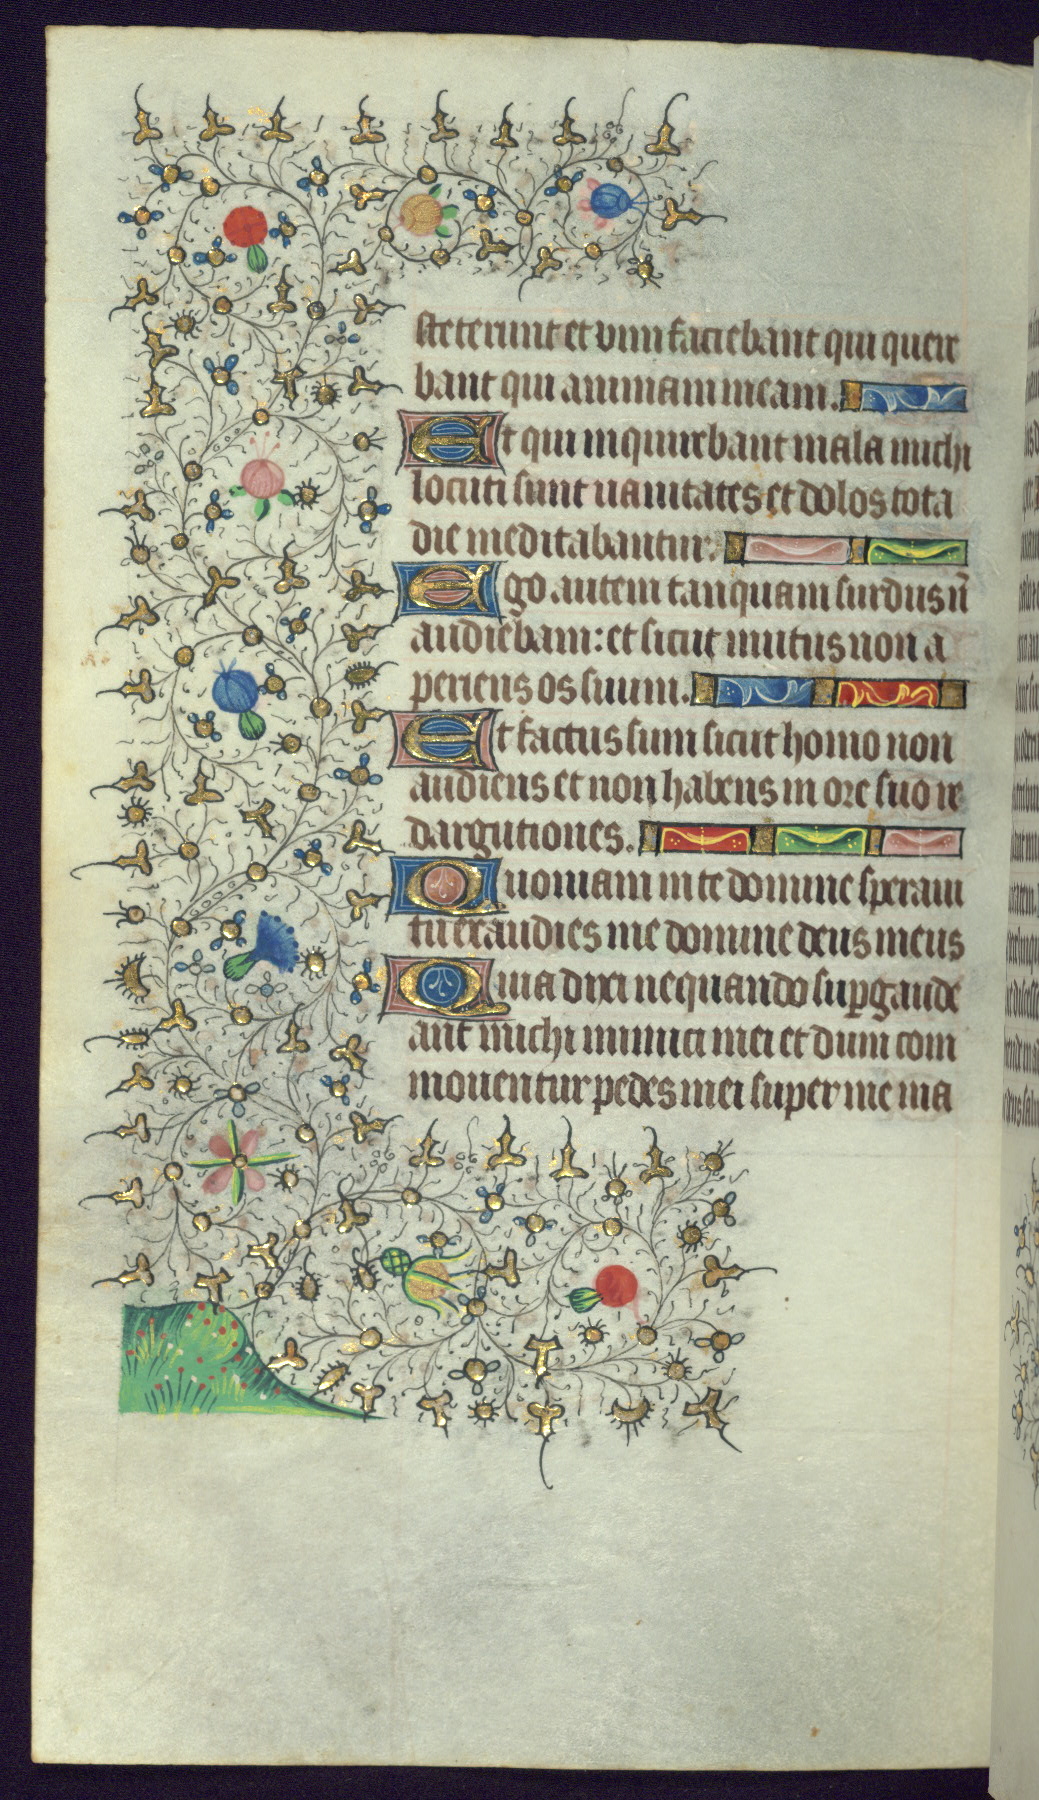 steterunt et vim faciebant qui quere
bant qui animam meam.
Et qui inquirebant mala michi
locuti sunt uanitates et dolos tota
die meditabantur.
Ego autem tanquam surdus n̄
audiebam: et sicut mutus non a
periens os suum.
Et factus sum sicut homo non
audiens et non habens in ore suo re
dargutiones.
Quoniam in te domine speraui
tu exaudies me domine deus meus
Quia dixi nequando suꝑgaude
ant michi inimici mei et dum com
mouentur pedes mei super me ma